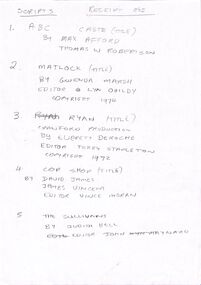 SCRIPTS RECEIV
1. ABC CASTE (TITLE)
BY MAX AFFORD
THOMAS W ROBERTSON
2. MATLOCK (TITLE)
BY GWENDA MARSH
EDITOR @ LYN OGILDY
COPYRIGHT 1974
3 RYAN RYAN (TITLE)
CRAWFORD PRODUCTION
BY EVERETT DEROCHE
EDITOR TERRY STAPLETON
COPYRIGHT 1972
4 COP SHOP (TITLE)
BY DAVID JAMES
JAMES VINCENT
EDITOR VINCE MORAN
5 THE SULLIVANS
BY JUDITH BELL
EDITOR JOHN MAYNARD